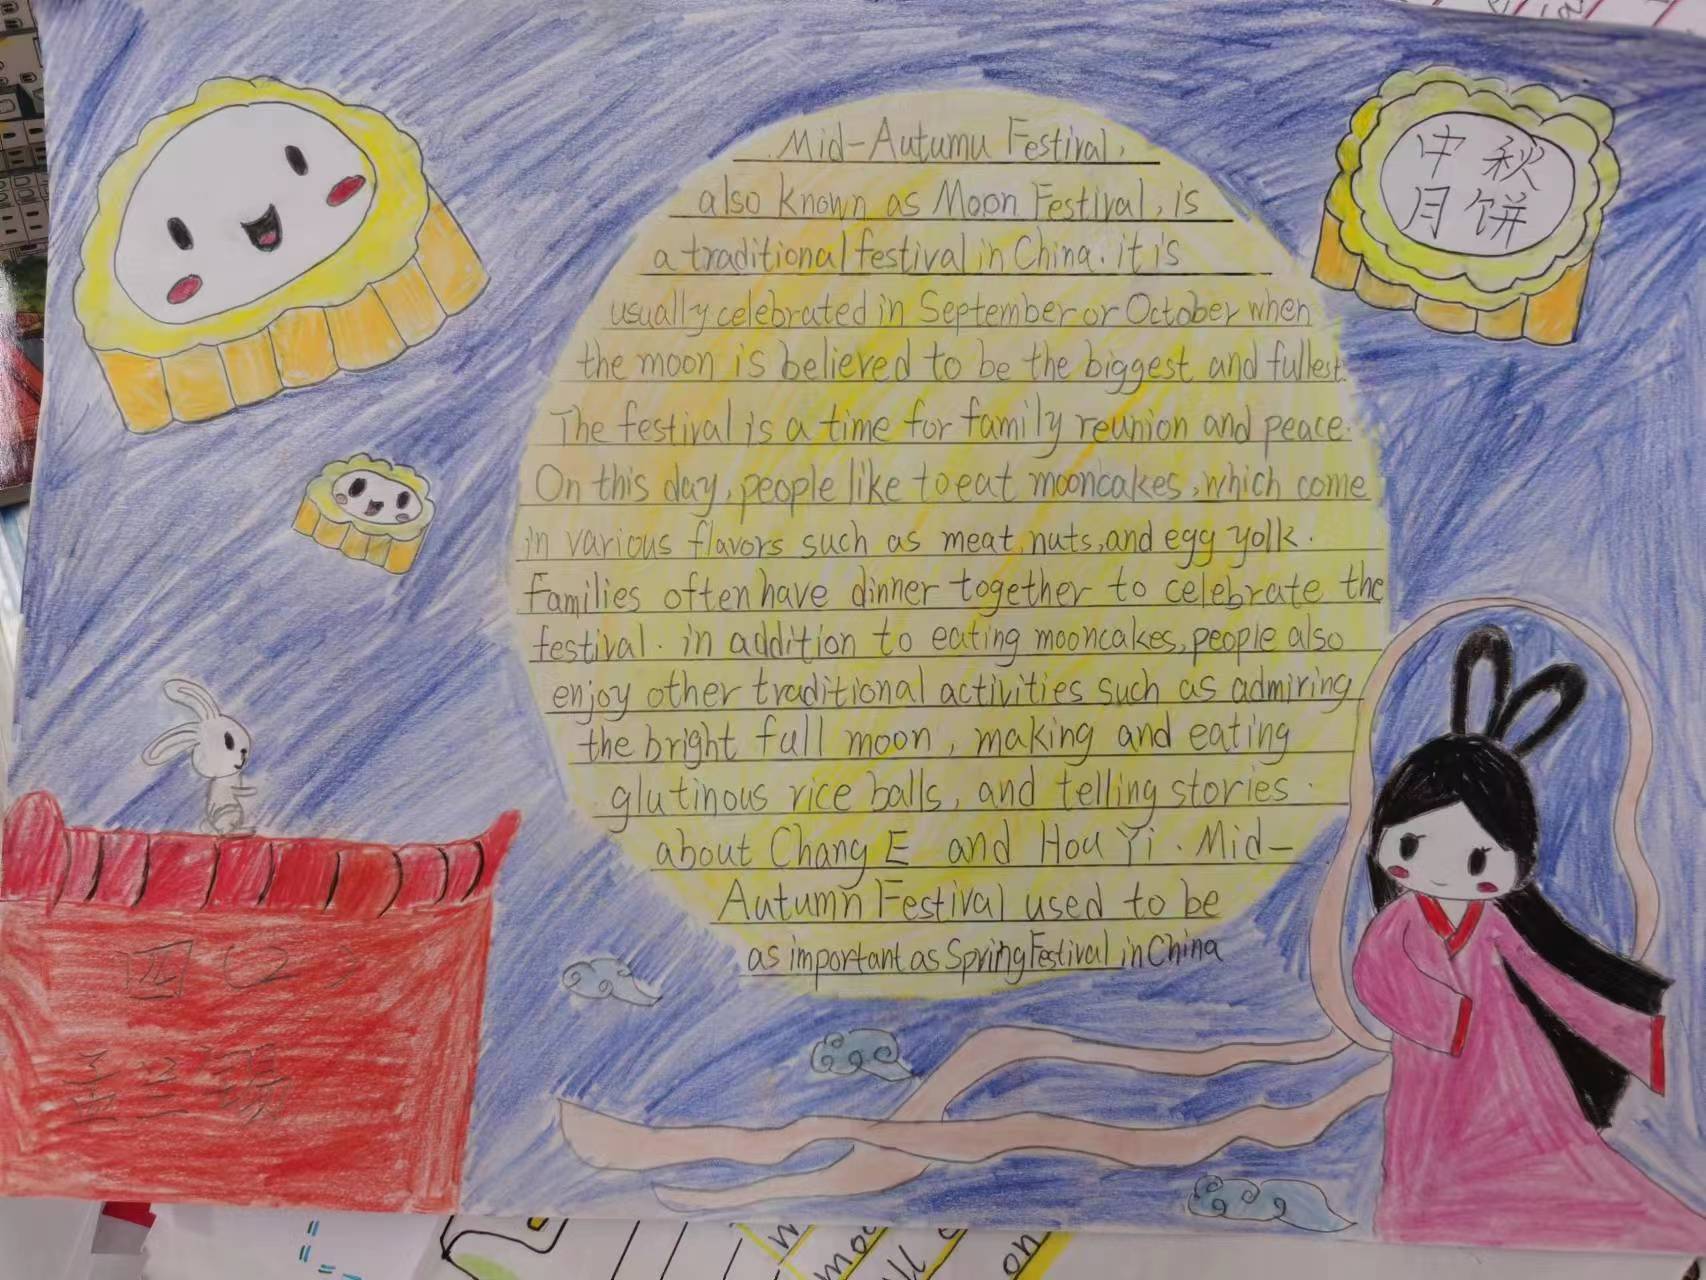 Mid-Autumu Festival,
also known as Moon Festival, is
a traditional festival in China. it is
usually celebrated in September or October when
the moon is believed to be the biggest and fullest.
The festival is a time for family reunion and peace.
On this day, people like to eat mooncakes, which come
in various flavors such as meat, nuts, and egg yolk.
Families often have dinner together to celebrate the
festival. in addition to eating mooncakes, people also
enjoy other traditional activities such as admiring
the bright full moon, making and eating
glutinous rice balls, and telling stories.
about Chang E and Hou Yi. Mid-
Autumn Festival used to be
as important as Spring Festival in China
中秋
月饼
四(2)
孟兰锡